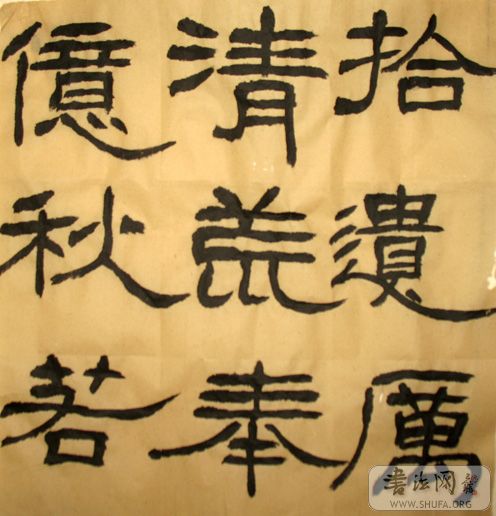 拾遺厲
清荒奉
億秋若
書法网
WWW.SHUFA.ORG